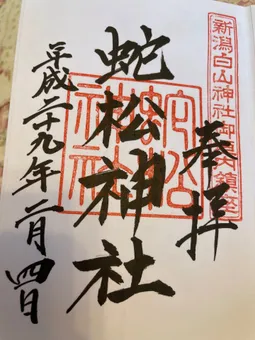 新潟白山神社御
奉拝
蛇松神社
蛇松神社
平成二十九年二月四日